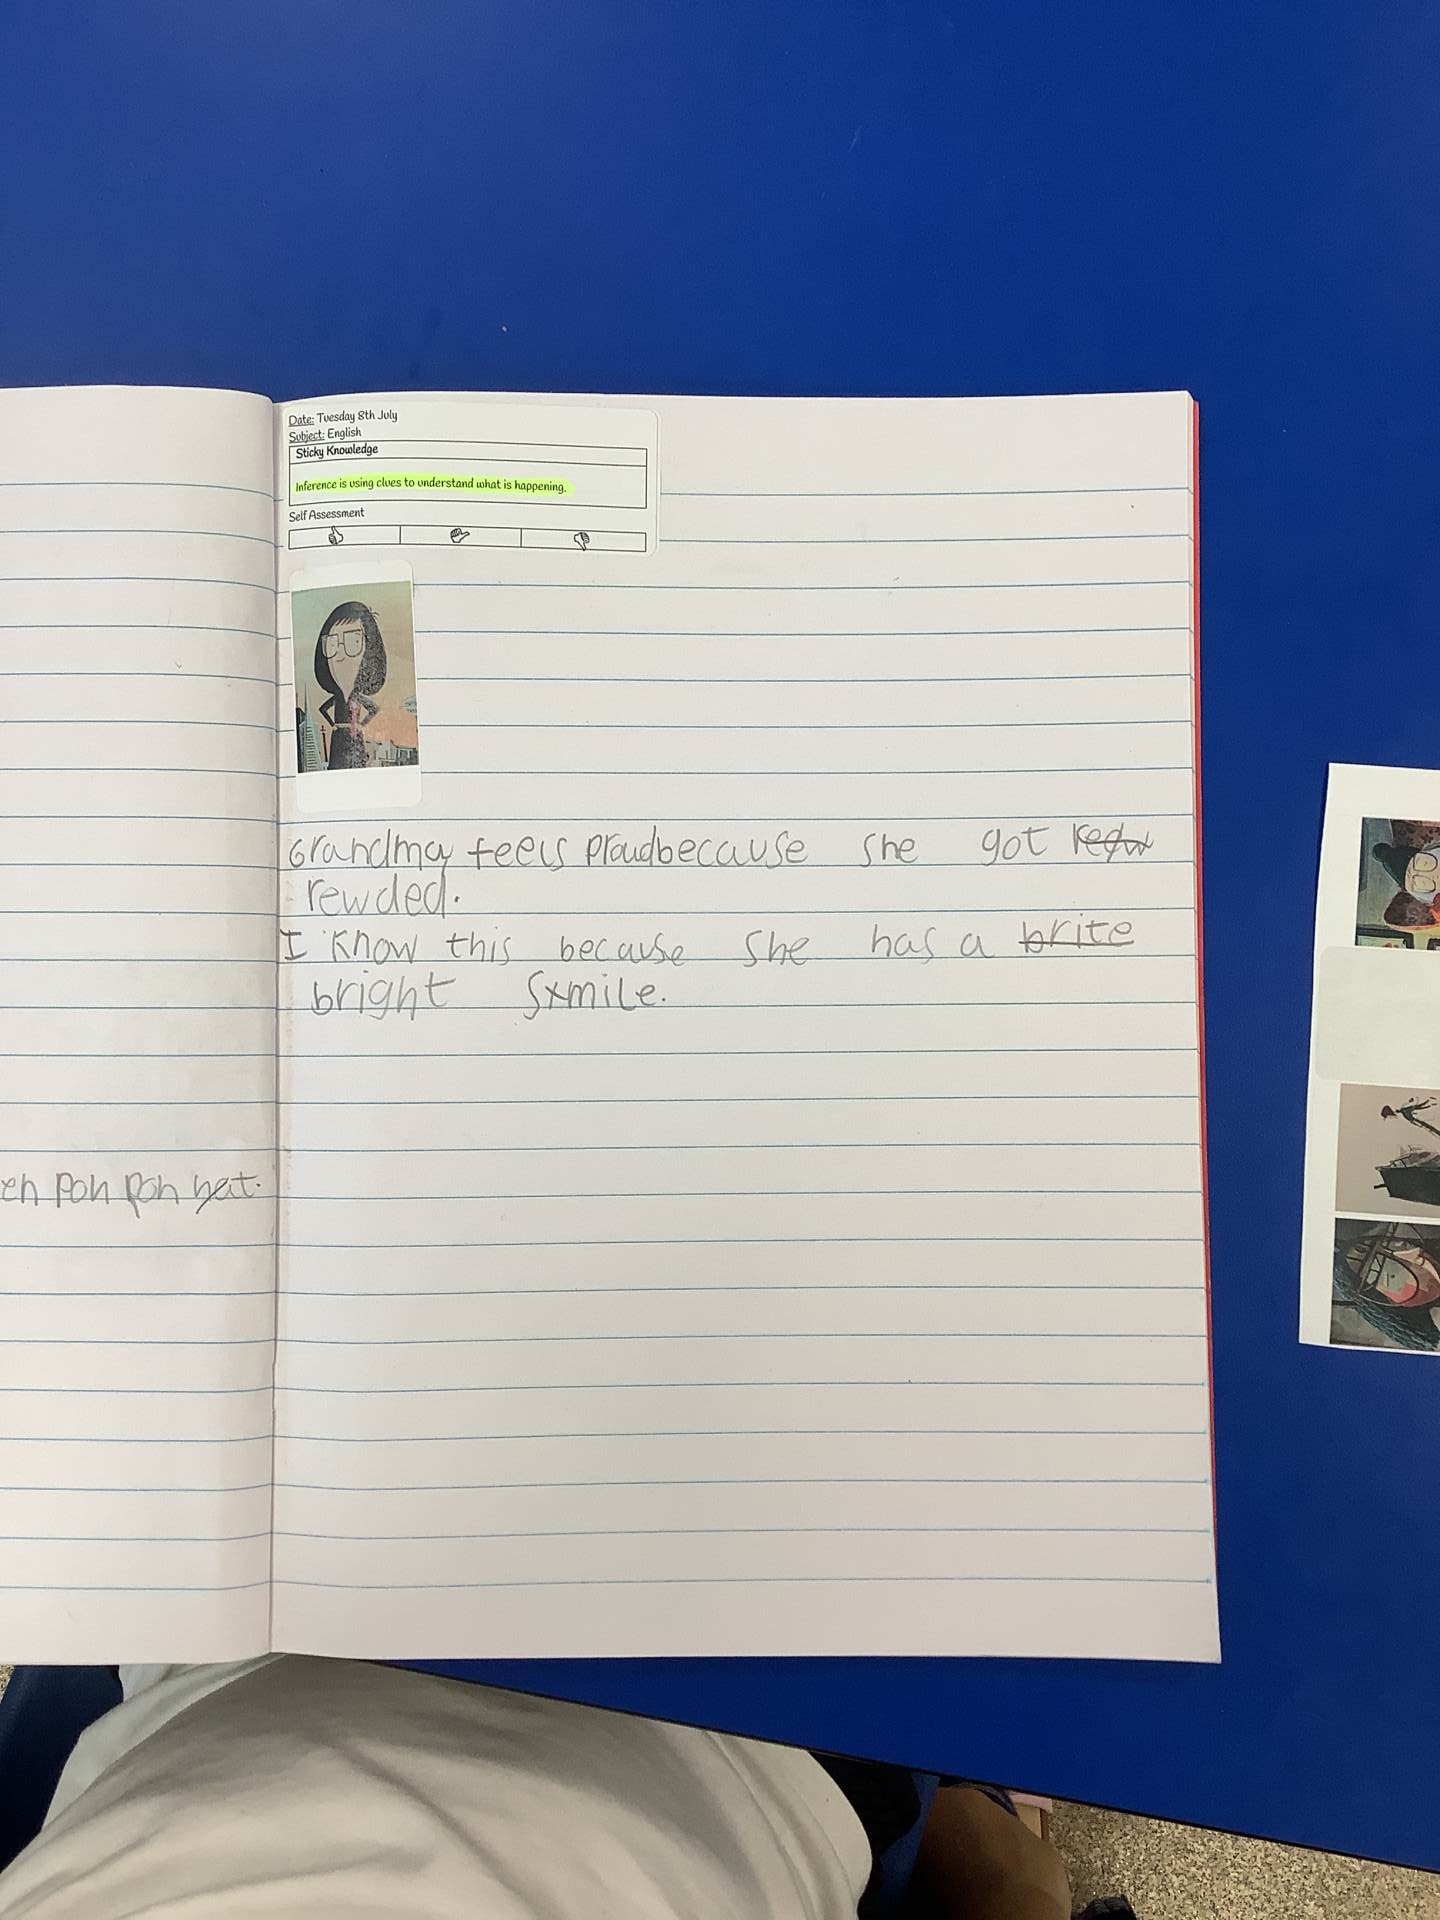 Date: Tuesday 8th July
Subject: English
Sticky Knowledge
Inference is using clues to understand what is happening.
Self Assessment
Grandma feels proudbecause she got
rewded.
I know this because she has a brite
bright smile.
en pon pon hat.